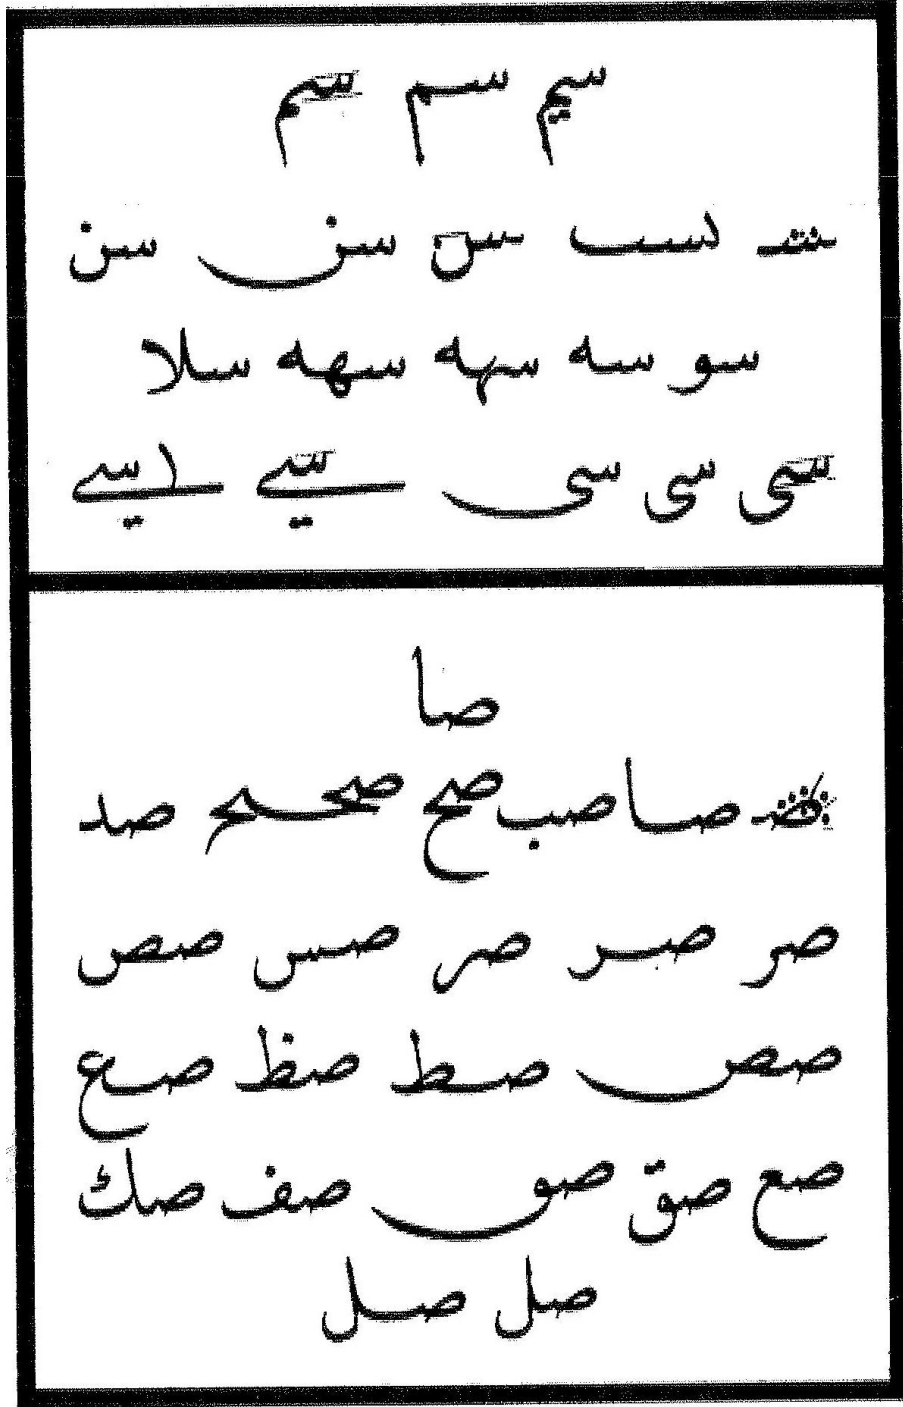 سيم سم سم
سن سن سس
سو سه سهه سهه سلا
سى سى سى
صا
صا صب صح صححح صد
صر صر صر صس صص
صص صط صظ صع
صع صق صو صف صك
صل صل